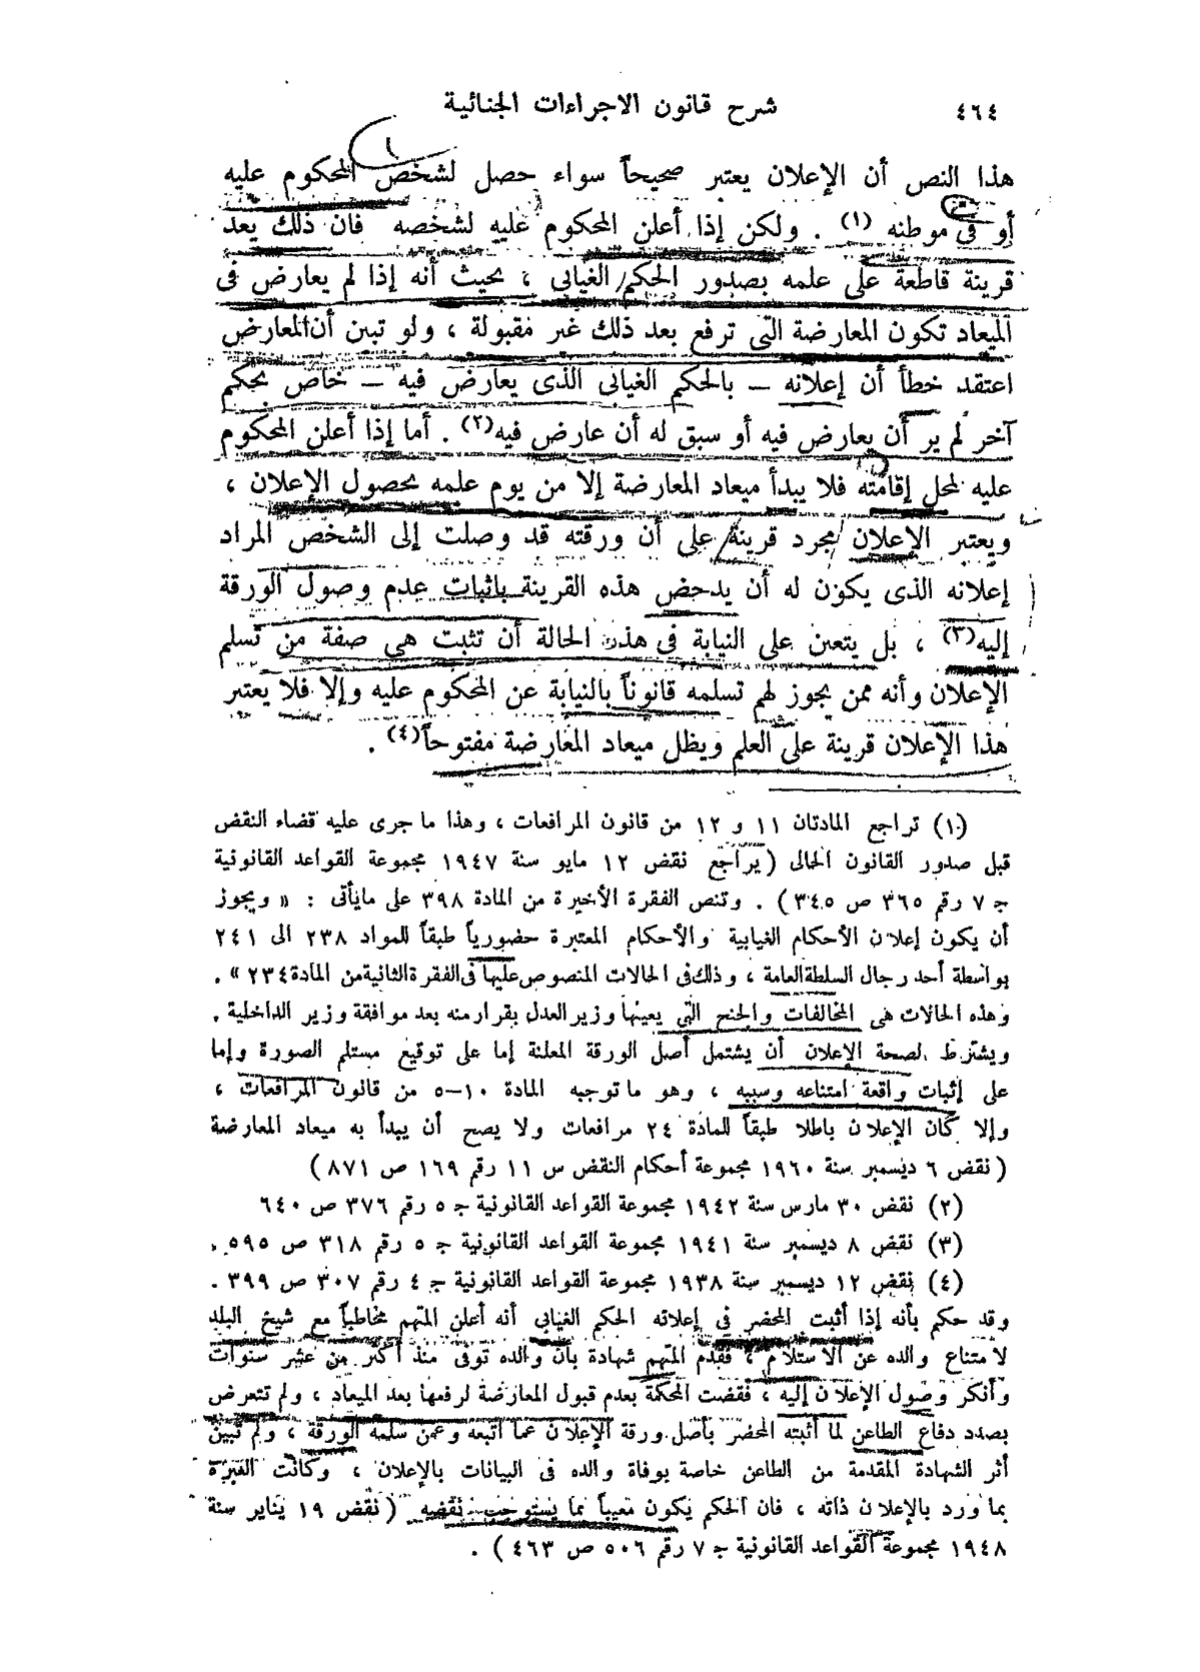 ٤٦٤
شرح قانون الاجراءات الجنائية
هذا النص أن الإعلان يعتبر صحيحاً سواء حصل لشخص المحكوم عليه
أو فى موطنه (١) . ولكن إذا أعلن المحكوم عليه لشخصه فان ذلك يعد
قرينة قاطعة على علمه بصدور الحكم الغيابى ، بحيث أنه إذا لم يعارض فى
الميعاد تكون المعارضة التى ترفع بعد ذلك غير مقبولة ، ولو تبين أن المعارض
اعتقد خطأ أن إعلانه – بالحكم الغيابى الذى يعارض فيه – خاص بحكم
آخر لم ير أن يعارض فيه أو سبق له أن عارض فيه(٢) . أما إذا أعلن المحكوم
عليه لمحل إقامته فلا يبدأ ميعاد المعارضة إلا من يوم علمه بحصول الإعلان ،
ويعتبر الإعلان مجرد قرينة على أن ورقته قد وصلت إلى الشخص المراد
إعلانه الذى يكون له أن يدحض هذه القرينة باثبات عدم وصول الورقة
إليه(٣) ، بل يتعين على النيابة فى هذه الحالة أن تثبت هى صفة من تسلم
الإعلان وأنه ممن يجوز لهم تسلمه قانوناً بالنيابة عن المحكوم عليه وإلا فلا يعتبر
هذا الإعلان قرينة على العلم ويظل ميعاد المعارضة مفتوحاً(٤) .
(١) تراجع المادتان ١١ و ١٢ من قانون المرافعات ، وهذا ما جرى عليه قضاء النقض
قبل صدور القانون الحالى (يراجع نقض ١٢ مايو سنة ١٩٤٧ مجموعة القواعد القانونية
ج ٧ رقم ٣٦٥ ص ٣٤٥ ) . وتنص الفقرة الأخيرة من المادة ٣٩٨ على مايأتى : « ويجوز
أن يكون إعلان الأحكام الغيابية والأحكام المعتبرة حضورياً طبقاً للمواد ٢٣٨ الى ٢٤١
بواسطة أحد رجال السلطة العامة ، وذلك فى الحالات المنصوص عليها فى الفقرة الثانية من المادة ٢٣٤ » .
وهذه الحالات هى المخالفات والجنح التى يعينها وزير العدل بقرار منه بعد موافقة وزير الداخلية .
ويشترط لصحة الإعلان أن يشتمل أصل الورقة المعلنة إما على توقيع مستلم الصورة وإما
على إثبات واقعة امتناعه وسببه ، وهو ما توجبه المادة ١٠–٥ من قانون المرافعات ،
وإلا كان الإعلان باطلا طبقاً للمادة ٢٤ مرافعات ولا يصح أن يبدأ به ميعاد المعارضة
( نقض ٦ ديسمبر سنة ١٩٦٠ مجموعة أحكام النقض س ١١ رقم ١٦٩ ص ٨٧١ )
(٢) نقض ٣٠ مارس سنة ١٩٤٢ مجموعة القواعد القانونية ج ٥ رقم ٣٧٦ ص ٦٤٠
(٣) نقض ٨ ديسمبر سنة ١٩٤١ مجموعة القواعد القانونية ج ٥ رقم ٣١٨ ص ٥٩٥ .
(٤) نقض ١٢ ديسمبر سنة ١٩٣٨ مجموعة القواعد القانونية ج ٤ رقم ٣٠٧ ص ٣٩٩ .
وقد حكم بأنه إذا أثبت المحضر فى إعلانه الحكم الغيابى أنه أعلن المتهم مخاطباً مع شيخ البلد
لامتناع والده عن الاستلام ، فقدم المتهم شهادة بأن والده توفى منذ أكثر من عشر سنوات
وأنكر وصول الإعلان إليه ، فقضت المحكمة بعدم قبول المعارضة لرفعها بعد الميعاد ، ولم تتعرض
بصدد دفاع الطاعن لما أثبته المحضر بأصل ورقة الإعلان عما اتبعه وعمن سلمه الورقة ، ولم تبين
أثر الشهادة المقدمة من الطاعن خاصة بوفاة والده فى البيانات بالإعلان ، وكانت العبرة
بما ورد بالإعلان ذاته ، فان الحكم يكون معيباً مما يستوجب نقضه ( نقض ١٩ يناير سنة
١٩٤٨ مجموعة القواعد القانونية ج ٧ رقم ٥٠٦ ص ٤٦٣ ) .